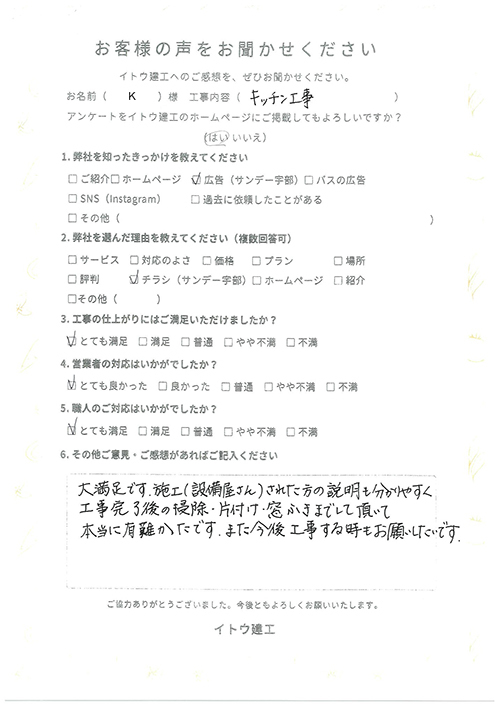 お客様の声をお聞かせください
イトウ建工へのご感想を、ぜひお聞かせください。
お名前（ K ）様 工事内容（ キッチン工事 ）
アンケートをイトウ建工のホームページにご掲載してもよろしいですか？
（はい いいえ）
1. 弊社を知ったきっかけを教えてください
□ご紹介□ホームページ ☑広告（サンデー宇部）□バスの広告
□SNS（Instagram） □過去に依頼したことがある
□その他（ ）
2. 弊社を選んだ理由を教えてください（複数回答可）
□サービス □対応のよさ □価格 □プラン □場所
□評判 ☑チラシ（サンデー宇部）□ホームページ □紹介
□その他（ ）
3. 工事の仕上がりにはご満足いただけましたか？
☑とても満足 □満足 □普通 □やや不満 □不満
4. 営業者の対応はいかがでしたか？
☑とても良かった □良かった □普通 □やや不満 □不満
5. 職人のご対応はいかがでしたか？
☑とても満足 □満足 □普通 □やや不満 □不満
6. その他ご意見・ご感想があればご記入ください
大満足です.施工(設備屋さん)された方の説明も分かりやすく
工事完了後の掃除・片付け・窓ふきまでして頂いて
本当に有難かたです.また今後工事する時もお願いしたいです.
ご協力ありがとうございました。今後ともよろしくお願いいたします。
イトウ建工